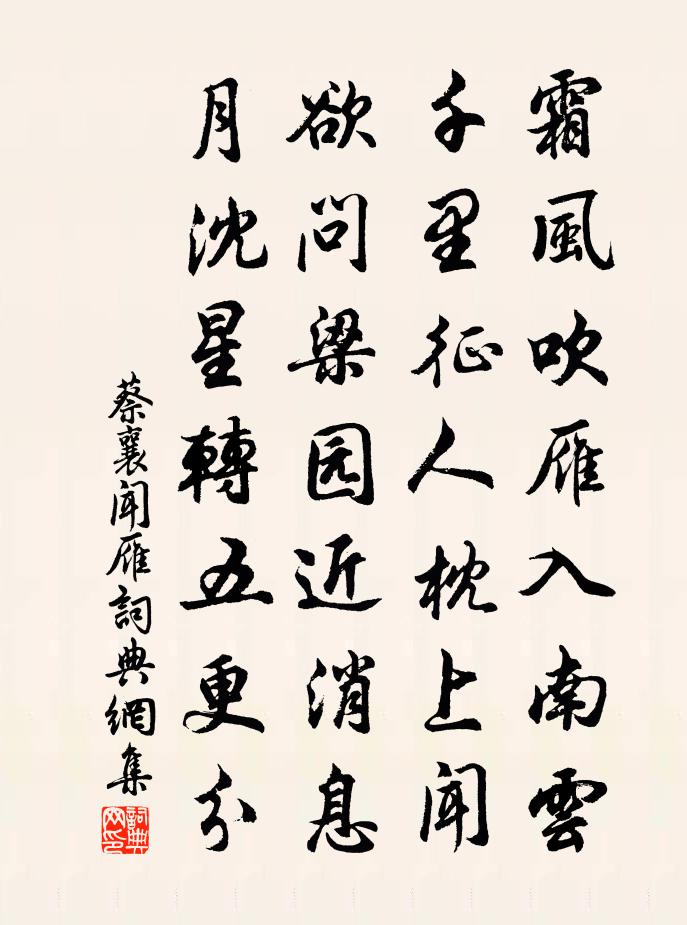 霜風吹雁入南雲
千里征人枕上聞
欲問梁园近消息
月沈星轉五更分
蔡襄聞雁詞典網集
詞典网印